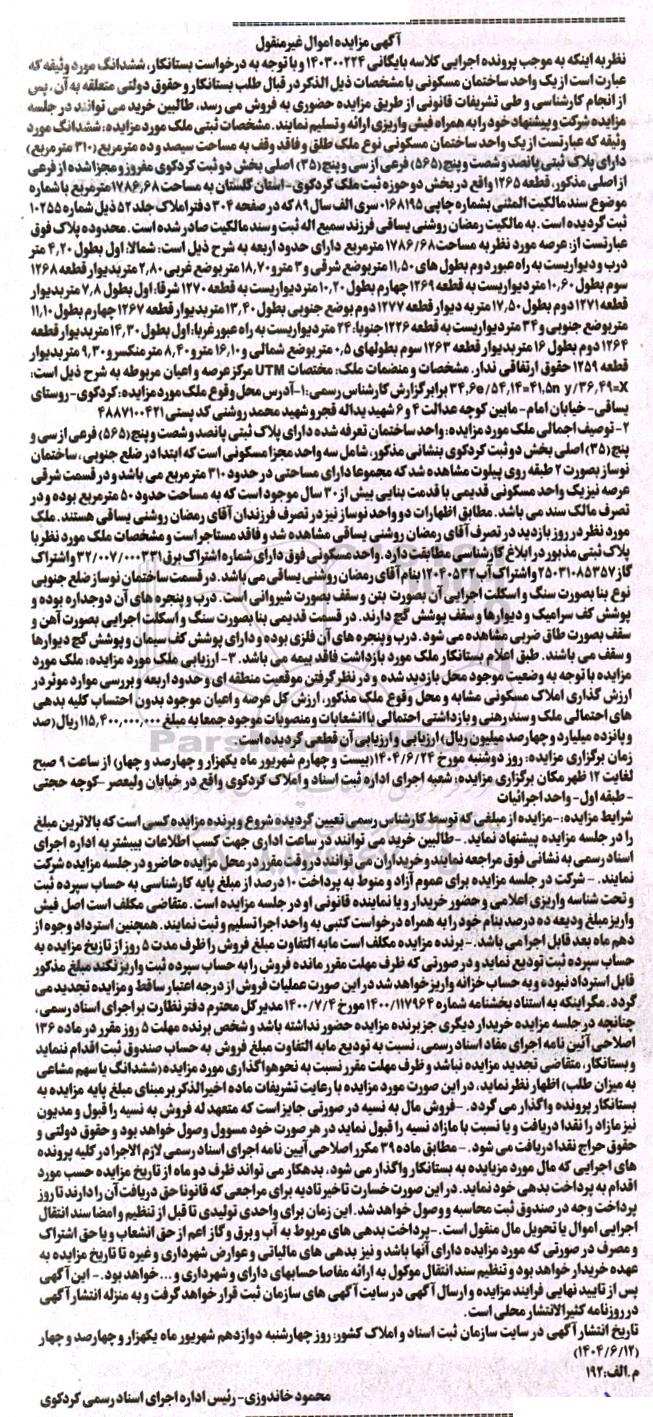 آگهی مزایده اموال غیرمنقول
نظر به اینکه به موجب پرونده اجرایی کلاسه بایگانی ۱۴۰۳۰۰۲۲۴ و با توجه به درخواست بستانکار، ششدانگ مورد وثیقه که
عبارت است از یک واحد ساختمان مسکونی با مشخصات ذیل الذکر در قبال طلب بستانکار و حقوق دولتی متعلقه به آن، پس
از انجام کارشناسی و طی تشریفات قانونی از طریق مزایده حضوری به فروش می رسد، طالبین خرید می توانند در جلسه
مزایده شرکت و پیشنهاد خود را به همراه فیش واریزی ارائه و تسلیم نمایند. مشخصات ثبتی ملک مورد مزایده: ششدانگ مورد
وثیقه که عبارتست از یک واحد ساختمان مسکونی نوع ملک طلق و فاقد وقف به مساحت سیصد و ده مترمربع (۳۱۰ مترمربع)
دارای پلاک ثبتی پانصد و شصت و پنج (۵۶۵) فرعی از سی و پنج (۳۵) اصلی بخش دو ثبت کردکوی مفروز و مجزا شده از فرعی
از اصلی مذکور، قطعه ۱۲۶۵ واقع در بخش دو حوزه ثبت ملک کردکوی - استان گلستان به مساحت ۱۷۸۶,۶۸ مترمربع با شماره
موضوع سند مالکیت المثنی بشماره چاپی ۰۱۶۸۱۹۵ سری الف سال ۸۹ که در صفحه ۳۰۴ دفتر املاک جلد ۵۲ ذیل شماره ۱۰۲۵۵
ثبت گردیده است. به مالکیت رمضان روشنی یساقی فرزند سمیع اله ثبت و سند مالکیت صادر شده است. محدوده پلاک فوق
عبارتست از: عرصه مورد نظر به مساحت ۱۷۸۶/۶۸ مترمربع دارای حدود اربعه به شرح ذیل است: شمالا: اول بطول ۴,۲۰ متر
درب و دیواریست به راه عبور دوم بطول های ۱۱,۵۰ متر بوضع شرقی و ۳ متر و ۱۸,۷۰ متر بوضع غربی ۲,۸۰ متر بدیوار قطعه ۱۲۶۸
سوم بطول ۱۰,۶۰ متر دیواریست به قطعه ۱۲۶۹ چهارم بطول ۱۰,۲۰ متر دیواریست به قطعه ۱۲۷۰ شرقا: اول بطول ۷,۸ متر بدیوار
قطعه ۱۲۷۱ دوم بطول ۱۷,۵۰ متر به دیوار قطعه ۱۲۷۷ دوم بوضع جنوبی بطول ۱۳,۴۰ متر بدیوار قطعه ۱۲۶۷ چهارم بطول ۱۱,۱۰
متر بوضع جنوبی و ۳۴ متر دیواریست به قطعه ۱۲۲۶ جنوبا: ۲۴ متر دیواریست به راه عبور غربا: اول بطول ۱۴,۳۰ متر بدیوار قطعه
۱۲۶۴ دوم بطول ۱۶ متر بدیوار قطعه ۱۲۶۳ سوم بطولهای ۰,۵ متر بوضع شمالی و ۱۶,۱۰ متر و ۸,۴۰ متر منکسر و ۹,۳۰ متر بدیوار
قطعه ۱۲۵۹ حقوق ارتفاقی ندارد. مشخصات و منضمات ملک: مختصات UTM مرکز عرصه و اعیان مربوطه به شرح ذیل است:
۳۴,۶e/۵۴,۱۴=۴۱,۵n y/۳۶,۴۹=X برابر گزارش کارشناس رسمی: ۱- آدرس محل وقوع ملک مورد مزایده: کردکوی- روستای
یساقی- خیابان امام- مابین کوچه عدالت ۴ و ۶ شهید یداله فجر و شهید محمد روشنی کد پستی ۴۸۸۷۱۰۰۴۲۱
۲- توصیف اجمالی ملک مورد مزایده: واحد ساختمان تعرفه شده دارای پلاک ثبتی پانصد و شصت و پنج (۵۶۵) فرعی از سی و
پنج (۳۵) اصلی بخش دو ثبت کردکوی بنشانی مذکور، شامل سه واحد مجزا مسکونی است که ابتدا در ضلع جنوبی، ساختمان
نوساز بصورت ۲ طبقه روی پیلوت مشاهده شد که مجموعا دارای مساحتی در حدود ۳۱۰ مترمربع می باشد و در قسمت شرقی
عرصه نیز یک واحد مسکونی قدیمی با قدمت بنایی بیش از ۳۰ سال موجود است که به مساحت حدود ۵۰ مترمربع بوده و در
تصرف مالک سند می باشد. مطابق اظهارات دو واحد نوساز نیز در تصرف فرزندان آقای رمضان روشنی یساقی هستند. ملک
مورد نظر در روز بازدید در تصرف آقای رمضان روشنی یساقی مشاهده شد و فاقد مستاجر است و مشخصات ملک مورد نظر با
پلاک ثبتی مذبور در ابلاغ کارشناسی مطابقت دارد. واحد مسکونی فوق دارای شماره اشتراک برق ۳۲/۰۰۷/۰۰۰۳۳۱ و اشتراک
گاز ۲۵۰۳۱۰۸۵۳۵۷ و اشتراک آب ۱۲۰۴۰۵۳۲ بنام آقای رمضان روشنی یساقی می باشد. در قسمت ساختمان نوساز ضلع جنوبی
نوع بنا بصورت سنگ و اسکلت اجرایی آن بصورت بتن و سقف بصورت شیروانی است. درب و پنجره های آن دوجداره بوده و
پوشش کف سرامیک و دیوارها و سقف پوشش گچ دارند. در قسمت قدیمی بنا بصورت سنگ و اسکلت اجرایی بصورت آهن و
سقف بصورت طاق ضربی مشاهده می شود. درب و پنجره های آن فلزی بوده و دارای پوشش کف سیمان و پوشش گچ دیوارها
و سقف می باشند. طبق اعلام بستانکار ملک مورد بازداشت فاقد بیمه می باشد. ۳- ارزیابی ملک مورد مزایده: ملک مورد
مزایده با توجه به وضعیت موجود محل بازدید شده و در نظر گرفتن موقعیت منطقه ای و حدود اربعه و بررسی موارد موثر در
ارزش گذاری املاک مسکونی مشابه و محل وقوع ملک مذکور، ارزش کل عرصه و اعیان موجود بدون احتساب کلیه بدهی
های احتمالی ملک و سند رهنی و بازداشتی احتمالی با انشعابات و منصوبات موجود جمعا به مبلغ ۱۱۵,۴۰۰,۰۰۰,۰۰۰ ریال (صد
و پانزده میلیارد و چهارصد میلیون ریال) ارزیابی و ارزیابی آن قطعی گردیده است.
زمان برگزاری مزایده: روز دوشنبه مورخ ۱۴۰۴/۶/۲۴ (بیست و چهارم شهریور ماه یکهزار و چهارصد و چهار) از ساعت ۹ صبح
لغایت ۱۲ ظهر مکان برگزاری مزایده: شعبه اجرای اداره ثبت اسناد و املاک کردکوی واقع در خیابان ولیعصر -کوچه حجتی
- طبقه اول- واحد اجرائیات
شرایط مزایده: -مزایده از مبلغی که توسط کارشناس رسمی تعیین گردیده شروع و برنده مزایده کسی است که بالاترین مبلغ
را در جلسه مزایده پیشنهاد نماید. -طالبین خرید می توانند در ساعت اداری جهت کسب اطلاعات بیشتر به اداره اجرای
اسناد رسمی به نشانی فوق مراجعه نمایند و خریداران می توانند در وقت مقرر در محل مزایده حاضر و در جلسه مزایده شرکت
نمایند. - شرکت در جلسه مزایده برای عموم آزاد و منوط به پرداخت ۱۰ درصد از مبلغ پایه کارشناسی به حساب سپرده ثبت
و تحت شناسه واریزی اعلامی و حضور خریدار و یا نماینده قانونی او در جلسه مزایده است. متقاضی مکلف است اصل فیش
واریز مبلغ ودیعه ده درصد بنام خود را به همراه درخواست کتبی به واحد اجرا تسلیم و ثبت نمایند. همچنین استرداد وجوه از
دهم ماه بعد قابل اجرا می باشد. - برنده مزایده مکلف است مابه التفاوت مبلغ فروش را ظرف مدت ۵ روز از تاریخ مزایده به
حساب سپرده ثبت تودیع نماید و در صورتی که ظرف مهلت مقرر مانده فروش را به حساب سپرده ثبت واریز نکند مبلغ مذکور
قابل استرداد نبوده و به حساب خزانه واریز خواهد شد در این صورت عملیات فروش از درجه اعتبار ساقط و مزایده تجدید می
گردد. مگر اینکه به استناد بخشنامه شماره ۱۴۰۰/۱۱۷۹۶۴ مورخ ۱۴۰۰/۷/۴ مدیر کل محترم دفتر نظارت بر اجرای اسناد رسمی،
چنانچه در جلسه مزایده خریدار دیگری جز برنده مزایده حضور نداشته باشد و شخص برنده مهلت ۵ روز مقرر در ماده ۱۳۶
اصلاحی آئین نامه اجرای مفاد اسناد رسمی، نسبت به تودیع مابه التفاوت مبلغ فروش به حساب صندوق ثبت اقدام ننماید
و بستانکار، متقاضی تجدید مزایده نباشد و ظرف مهلت مقرر نسبت به نحوه واگذاری مورد مزایده (ششدانگ یا سهم مشاعی
به میزان طلب) اظهار نظر نماید، در این صورت مورد مزایده با رعایت تشریفات ماده اخیرالذکر بر مبنای مبلغ پایه مزایده به
بستانکار پرونده واگذار می گردد. -فروش مال به نسیه در صورتی جایز است که متعهد له فروش به نسیه را قبول و مدیون
نیز مازاد را نقدا دریافت و یا نسبت با مازاد نسیه را قبول نماید در هر صورت خود مسوول وصول خواهد بود و حقوق دولتی و
حقوق حراج نقدا دریافت می شود. - مطابق ماده ۳۹ مکرر اصلاحی آیین نامه اجرای اسناد رسمی لازم الاجرا در کلیه پرونده
های اجرایی که مال مورد مزیایده به بستانکار واگذار می شود، بدهکار می تواند ظرف دو ماه از تاریخ مزایده حسب مورد
اقدام به پرداخت بدهی خود نماید. در این صورت خسارت تاخیر تادیه برای مراجعی که قانونا حق دریافت آن را دارند تا روز
پرداخت وجه در صندوق ثبت محاسبه و وصول خواهد شد. این زمان برای واحدی تولیدی تا قبل از تنظیم و امضا سند انتقال
اجرایی اموال یا تحویل مال منقول است. -پرداخت بدهی های مربوط به آب و برق و گاز اعم از حق انشعاب و یا حق اشتراک
و مصرف در صورتی که مورد مزایده دارای آنها باشد و نیز بدهی های مالیاتی و عوارض شهرداری و غیره تا تاریخ مزایده به
عهده خریدار خواهد بود و تنظیم سند انتقال موکول به ارائه مفاصا حسابهای دارای و شهرداری و ... خواهد بود. - این آگهی
پس از تایید نهایی فرایند مزایده و ارسال آگهی در سایت آگهی های سازمان ثبت قرار خواهد گرفت و به منزله انتشار آگهی
در روزنامه کثیرالانتشار محلی است.
تاریخ انتشار آگهی در سایت سازمان ثبت اسناد و املاک کشور: روز چهارشنبه دوازدهم شهریور ماه یکهزار و چهارصد و چهار
(۱۴۰۴/۶/۱۲)
م.الف: ۱۹۲
محمود خاندوزی- رئیس اداره اجرای اسناد رسمی کردکوی